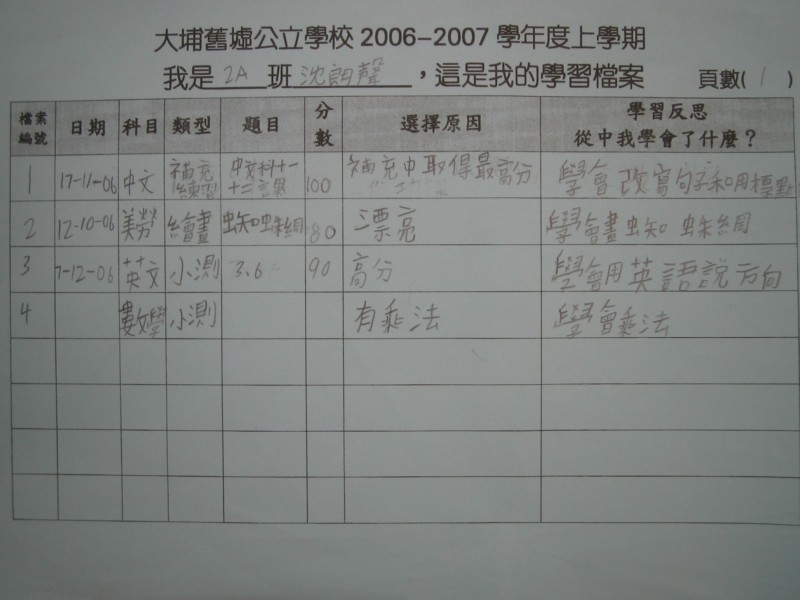 大埔舊墟公立學校 2006–2007 學年度上學期
我是 2A 班 沈朗聲 ,這是我的學習檔案 頁數( 1 )
檔案編號 日期 科目 類型 題目 分數 選擇原因 學習反思 從中我學會了什麼?
1 17-11-06 中文 補充練習 中文科十一十二言題 100 補充中取得最高分 學會改寫句子和用標點
2 12-10-06 美勞 繪畫 蜘蛛網 80 漂亮 學會畫蜘蛛網
3 7-12-06 英文 小測 3.6 90 高分 學會用英語說方向
4 數學 小測 有乘法 學會乘法